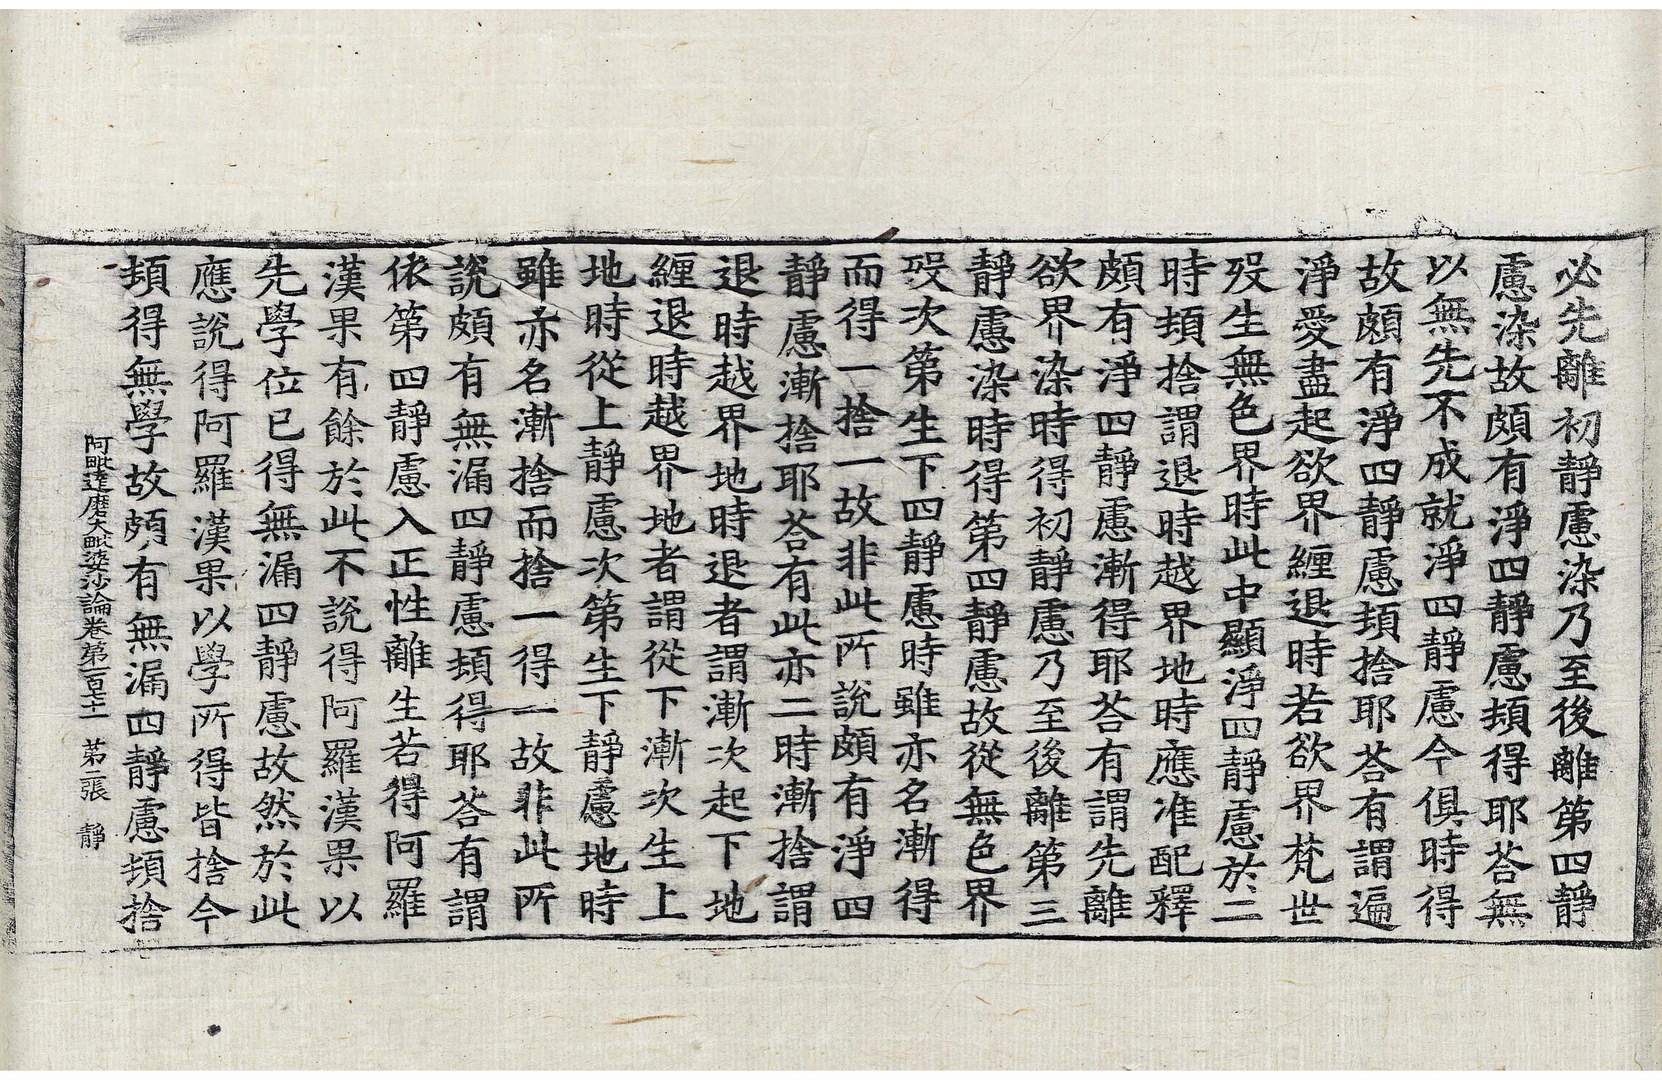 必先離初靜慮染乃至後離第四靜
慮染故頗有淨四靜慮頓得耶荅無
以無先不成就淨四靜慮今俱時得
故頗有淨四靜慮頓捨耶荅有謂遍
淨愛盡起欲界纒退時若欲界梵世
歿生無色界時此中顯淨四靜慮於二
時頓捨謂退時越界地時應准配釋
頗有淨四靜慮漸得耶荅有謂先離
欲界染時得初靜慮乃至後離第三
靜慮染時得第四靜慮故從無色界
歿次第生下四靜慮時雖亦名漸得
而得一捨一故非此所說頗有淨四
靜慮漸捨耶荅有此亦二時漸捨謂
退時越界地時退者謂漸次起下地
纒退時越界地者謂從下漸次生上
地時從上靜慮次第生下靜慮地時
雖亦名漸捨而捨一得一故非此所
說頗有無漏四靜慮頓得耶荅有謂
依第四靜慮入正性離生若得阿羅
漢果有餘於此不說得阿羅漢果以
先學位已得無漏四靜慮故然於此
應說得阿羅漢果以學所得皆捨今
頓得無學故頗有無漏四靜慮頓捨
阿毗達磨大毗婆沙論卷第 第二張 靜